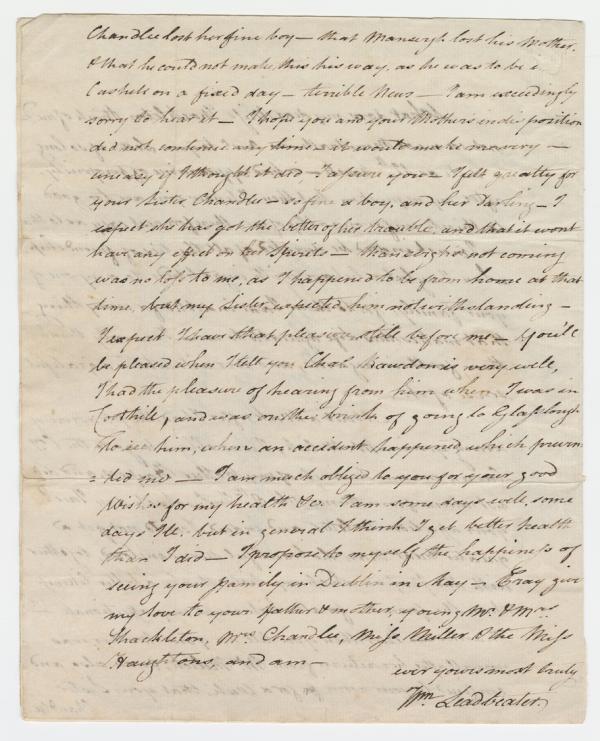 Chandlee lost her fine boy — that Mansergh lost his Mother,
& that he could not make this his way, as he was to be in
Cashell on a fixed day — terrible News — I am exceedingly
sorry to hear it — I hope you and your Mothers indisposition
did not continue any time — it would make me very —
uneasy if I thought it did, I assure you — I felt greatly for
your Sister Chandlee — so fine a boy, and her Darling — I
expect she has got the better of her trouble, and that it wont
have any effect on her Spirits — Mansergh's not coming
was no loss to me, as I happened to be from home at that
time, but my Sister expected him notwithstanding —
I expect I have that pleasure still before me — You'll
be pleased when I tell you Chas. Rawdon is very well,
I had the pleasure of hearing from him when I was in
Forthill, and was on the brink of going to Glaslough
To see him, when an accident happened which preven
= did me — I am much oblized to you for your good
Wishes for my health &c. I am some days well, some
days Ill, but in general I think I get better health
than I did — I propose to myself the happiness of
seeing your family in Dublin in May — Pray give
my love to your father & mother, young Mr. & Mrs.
Shackleton, Mrs. Chandlee, Miss Muller & the Miss
Haughtons, and am —
ever yours most truly
Wm. Leadbeater.